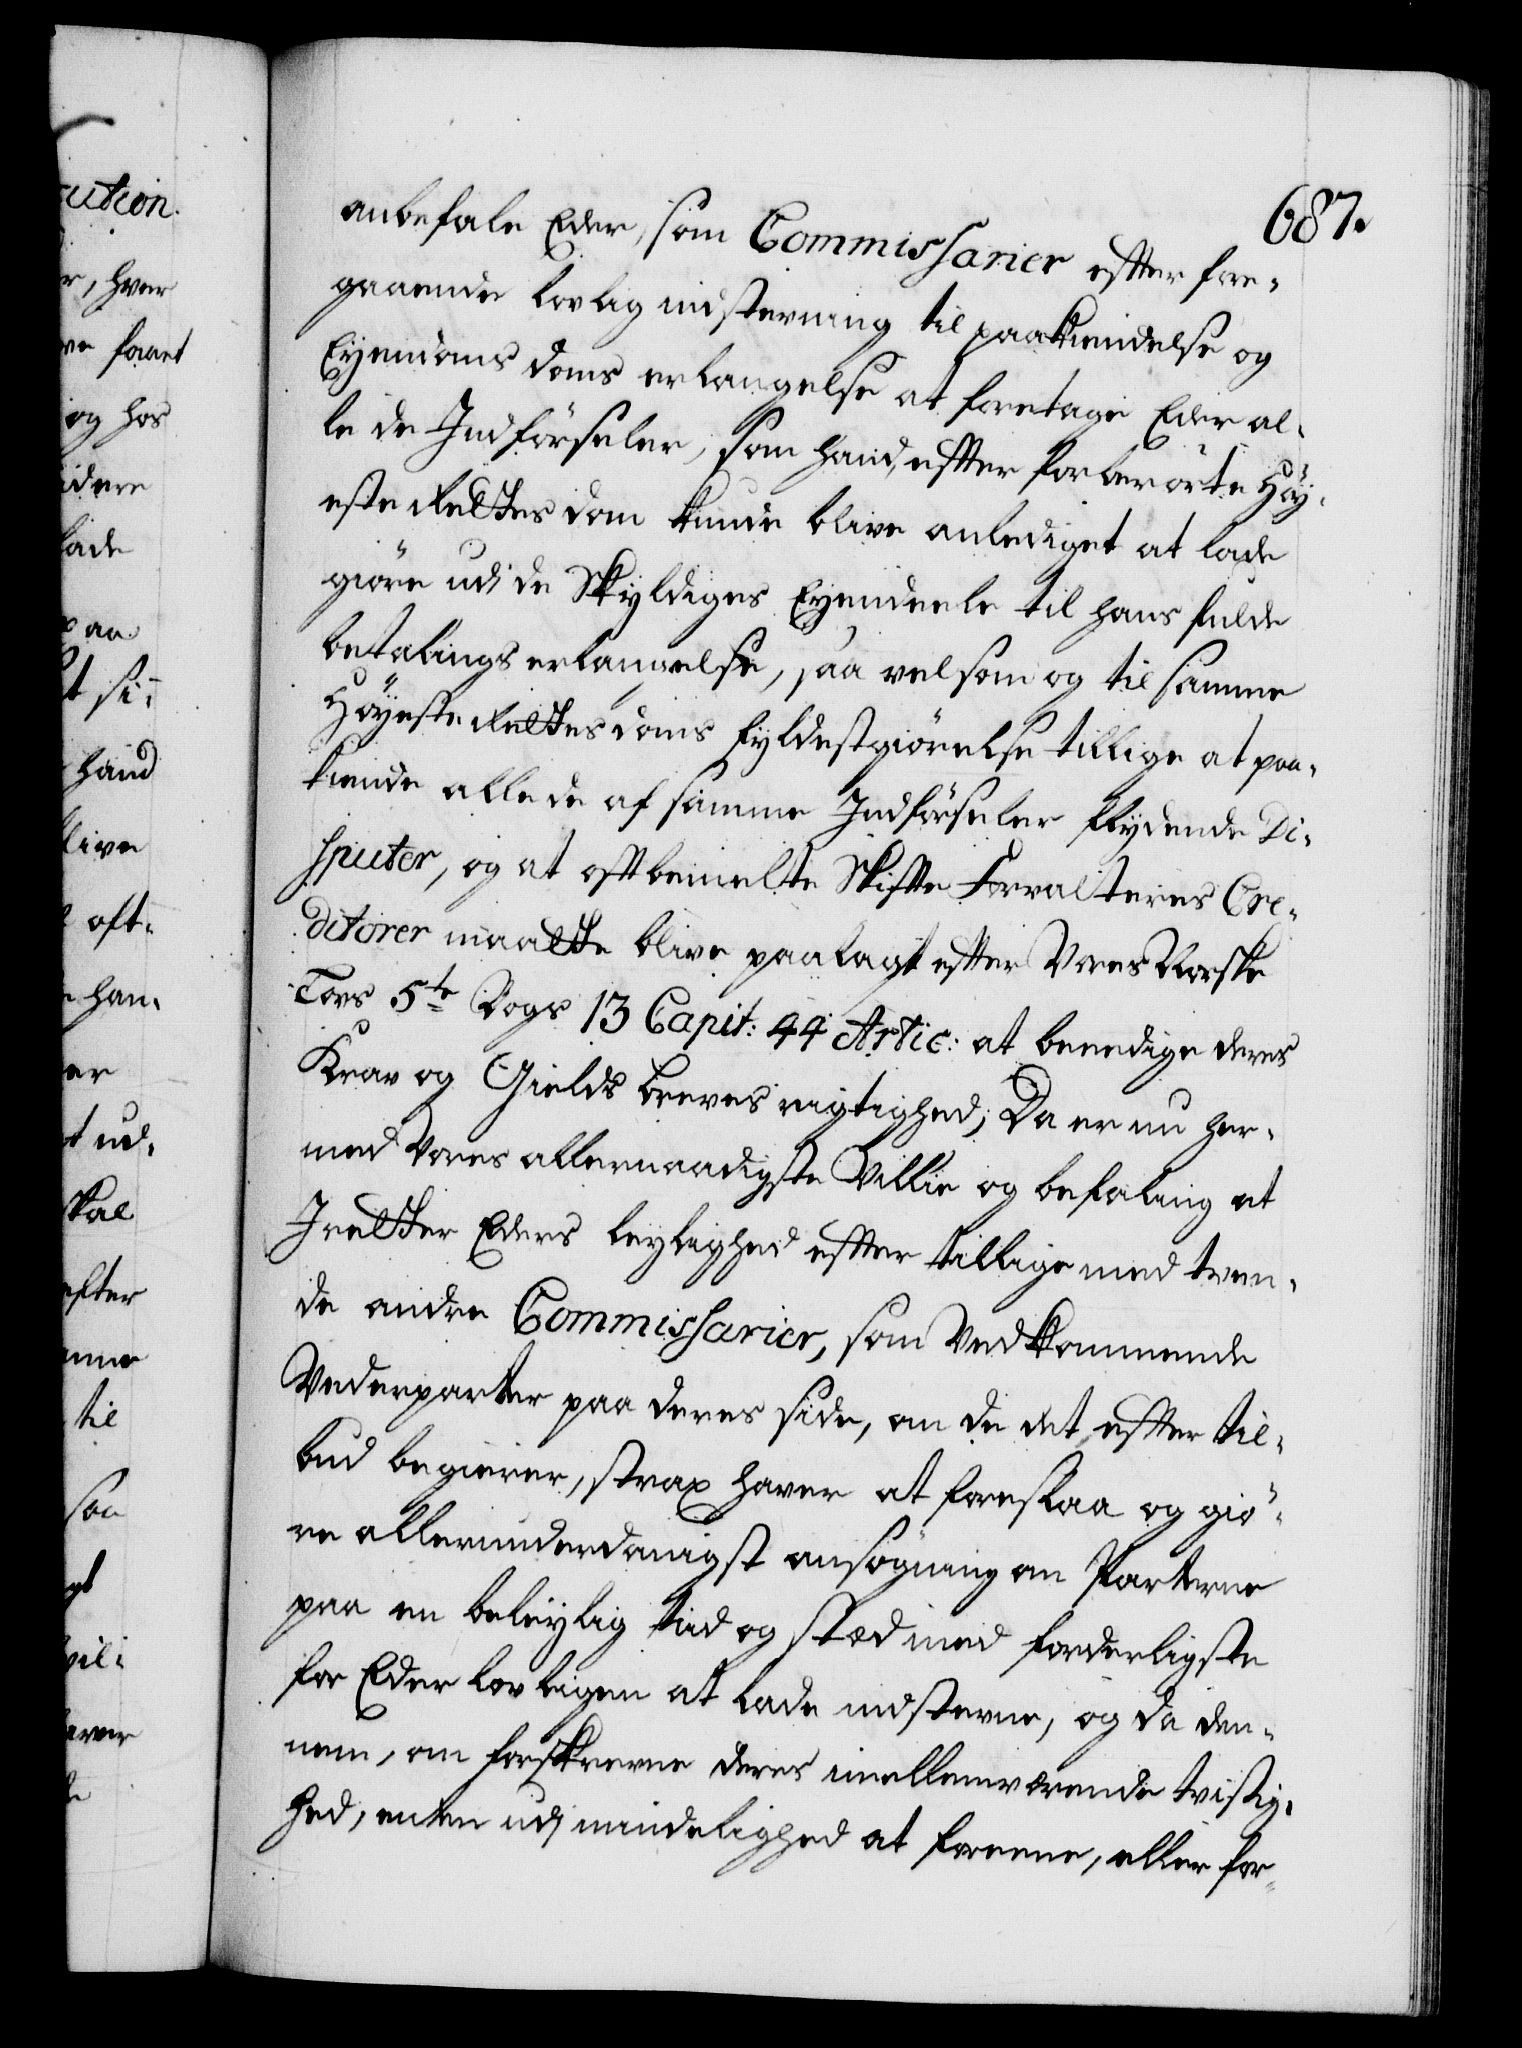 687.
anbefale Eder, som Commissarier effter fore-
gaaende lovlig indstevning til paakiendelse og
Eyendoms doms erlangelse at foretage Eder al-
le de Indförseler, som hand, effter forberörte Höy-
este Rettes dom kunde blive anlediget at lade
giöre udi de Skyldiges Eyendeele til hans fulde
betalings erlangelse, saa vel som og til samme
Höyeste Rettes doms fyldestgiörelse tillige at paa-
kiende alle de af samme Indförseler flydende Di-
sputer, og at offtbemelte Skifte Forvalteres Cre-
ditorer maatte blive paalagt effter Vores Norske
Lovs 5te Bogs 13 Capit: 44 Artic: at beeedige deres
Krav og Gields breves rigtighed; Da er nu her-
med Vores allernaadigste Villie og befaling at
I retter Eders leylighed effter tillige med tven-
de andre Commissarier, som Vedkommende
Vederparter paa deres side, om de det, effter til-
bud begierer, strax haver at foreslaa og giö-
re allerunderdanigst ansögning om Parterne
paa en beleylig tiid og stæd med forderligste
for Eder lovligen at lade indstevne, og da den-
nem, om forskrevne deres imellemværende tvistig-
hed, enten udi mindelighed at foreene, eller for-
ution.
r, hver
ve faaet
og hos
idere
lade
paa
t si-
hand
live
oft-
han-
er
t ud-
skal
efter
mme
til
son
gt
vil-
erver